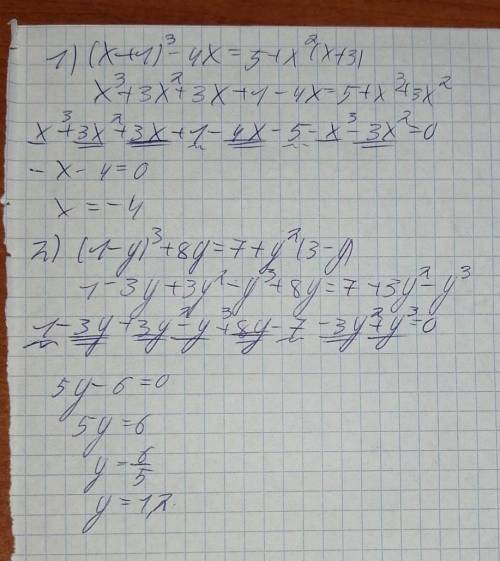 1) (x+1)³ - 4x = 5 + x²(x+3)
x³+3x²+3x+1-4x=5+x³+3x²
x³+3x²+3x+1-4x-5-x³-3x²=0
-x-4=0
x=-4
2) (1-y)³+8y=7+y²(3-y)
1-3y+3y²-y³+8y=7+3y²-y³
1-3y+3y²-y³+8y-7-3y²+y³=0
5y-6=0
5y=6
y=6/5
y=1,2